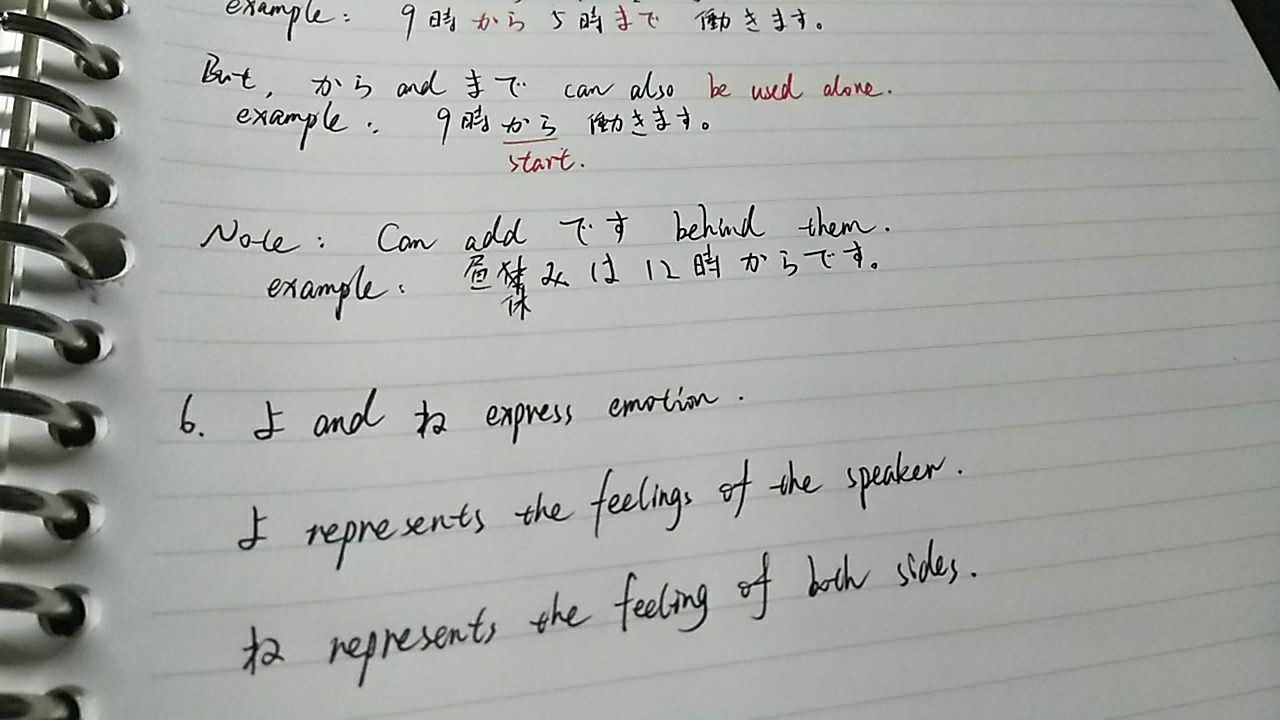 example: 9時から5時まで 働きます。
But, から and まで can also be used alone.
example: 9時から 働きます。
start.
Note: Can add です behind them.
example: 昼休みは12時からです。
6. よ and ね express emotion.
よ represents the feelings of the speaker.
ね represents the feeling of both sides.